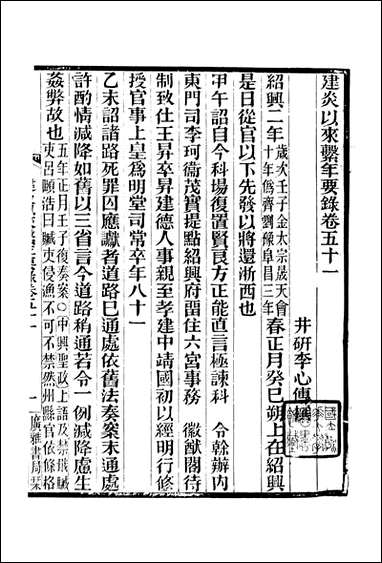 建炎以來繫年要錄卷五十一
井研李心傳撰
紹興二年歲次壬子金太宗晟天會十年僞齊劉豫阜昌三年春正月癸巳朔上在紹興
是日從官以下先發以將還浙西也
甲午詔自今科場復置賢良方正能直言極諫科 令幹辦内
東門司李珂衞茂實提點紹興府畱住六宮事務 徽猷閣待
制致仕王昇卒昇建德人事親至孝建中靖國初以經明行修
授官事上皇爲明堂司常卒年八十一
乙未詔諸路死罪囚應讞者道路已通處依舊法奏案未通處
許酌情減降如舊以三省言今道路稍通若令一例減降慮生
姦弊故也五年正月壬子復奏案○中興聖政上語及禁戢贓吏呂頤浩曰贓吏侵漁不可不禁然州縣官依條格
一
廣雅書局栞